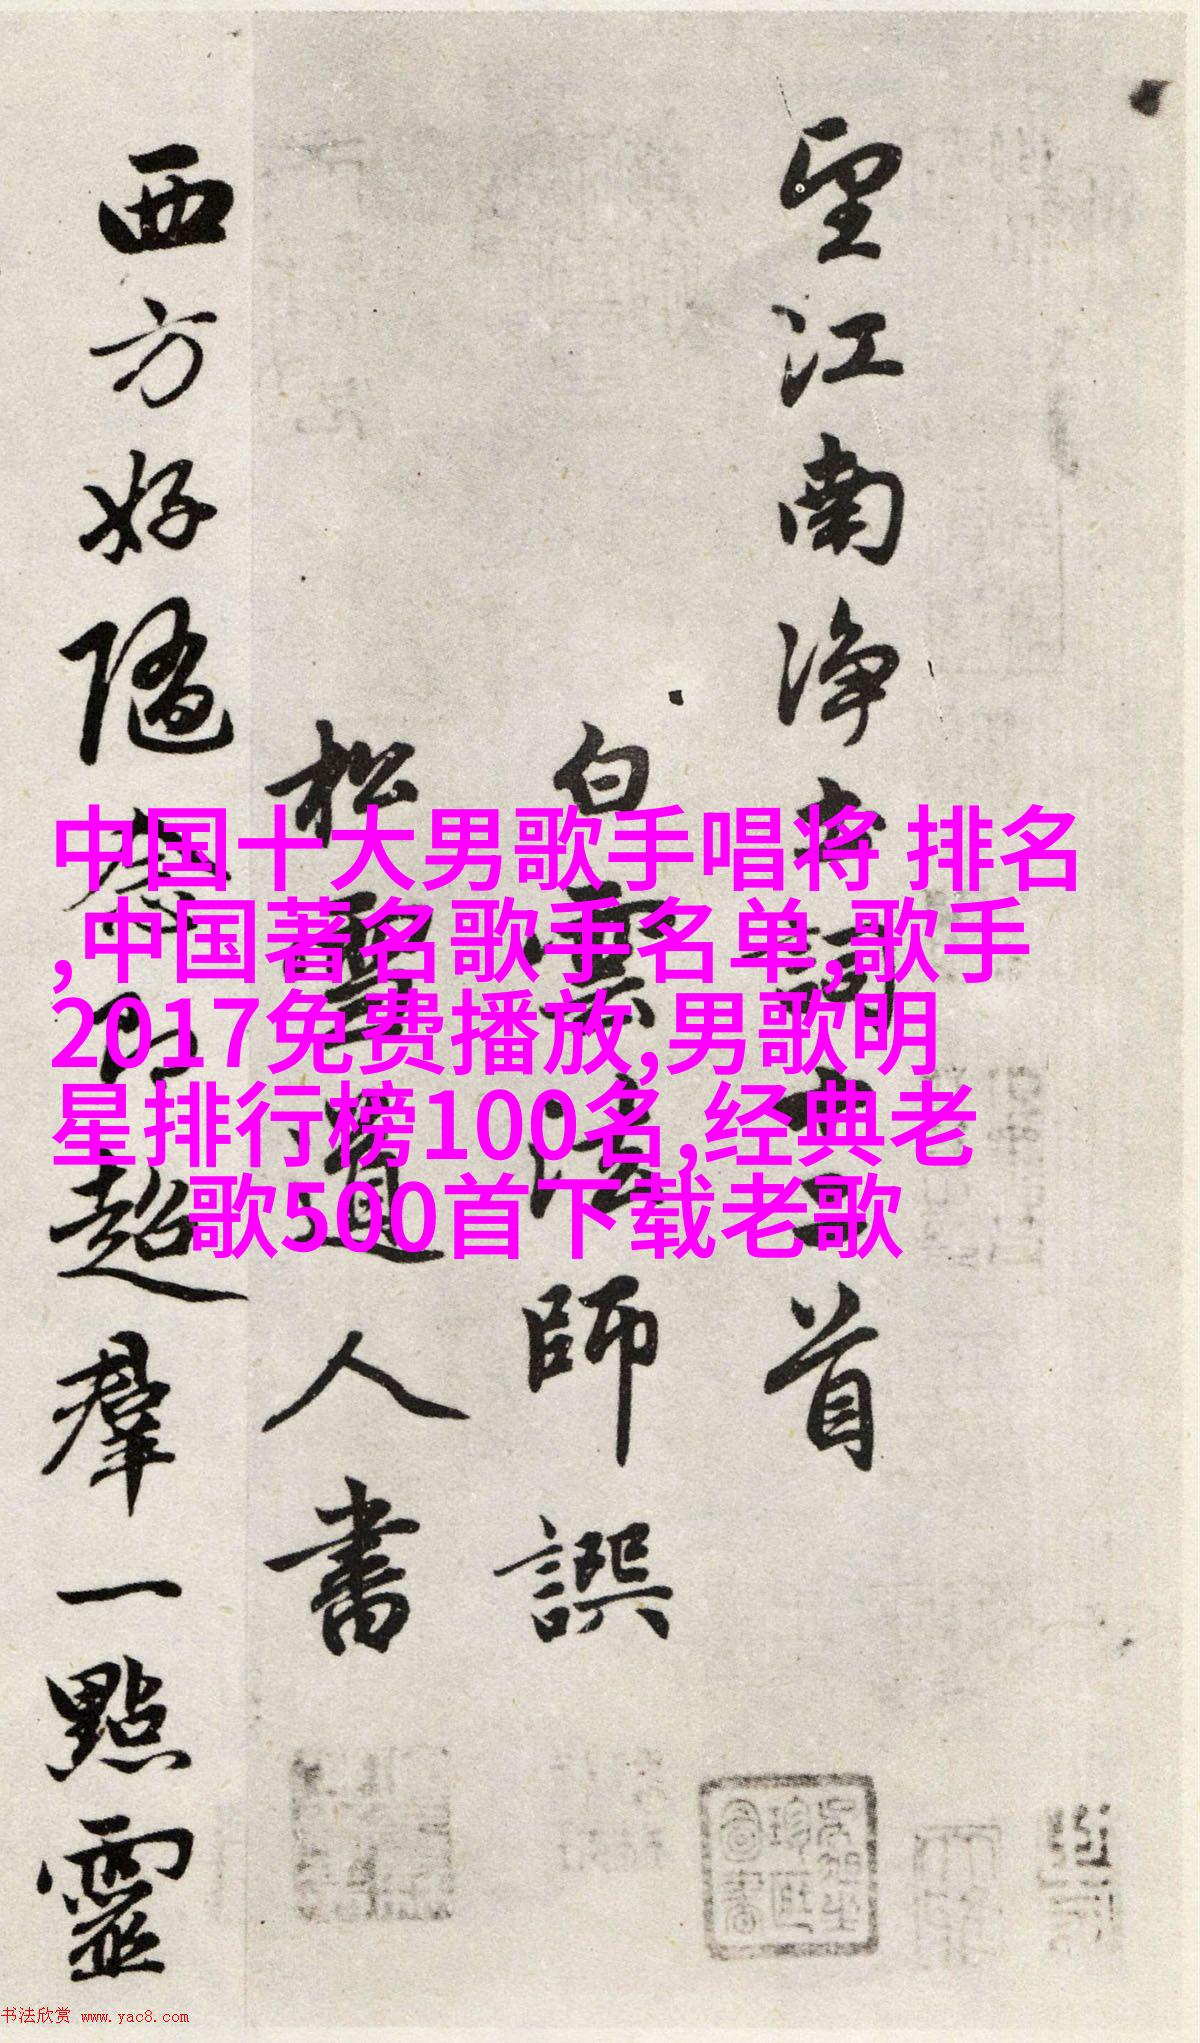 望江南净土詞十二首
白雲法師譔
松雪道人書
西方好隨念即超羣一點靈
中国十大男歌手唱将 排名
,中国著名歌手名单,歌手
2017免费播放,男歌明
星排行榜100名,经典老
歌500首下载老歌
书法欣赏 www.yac8.com